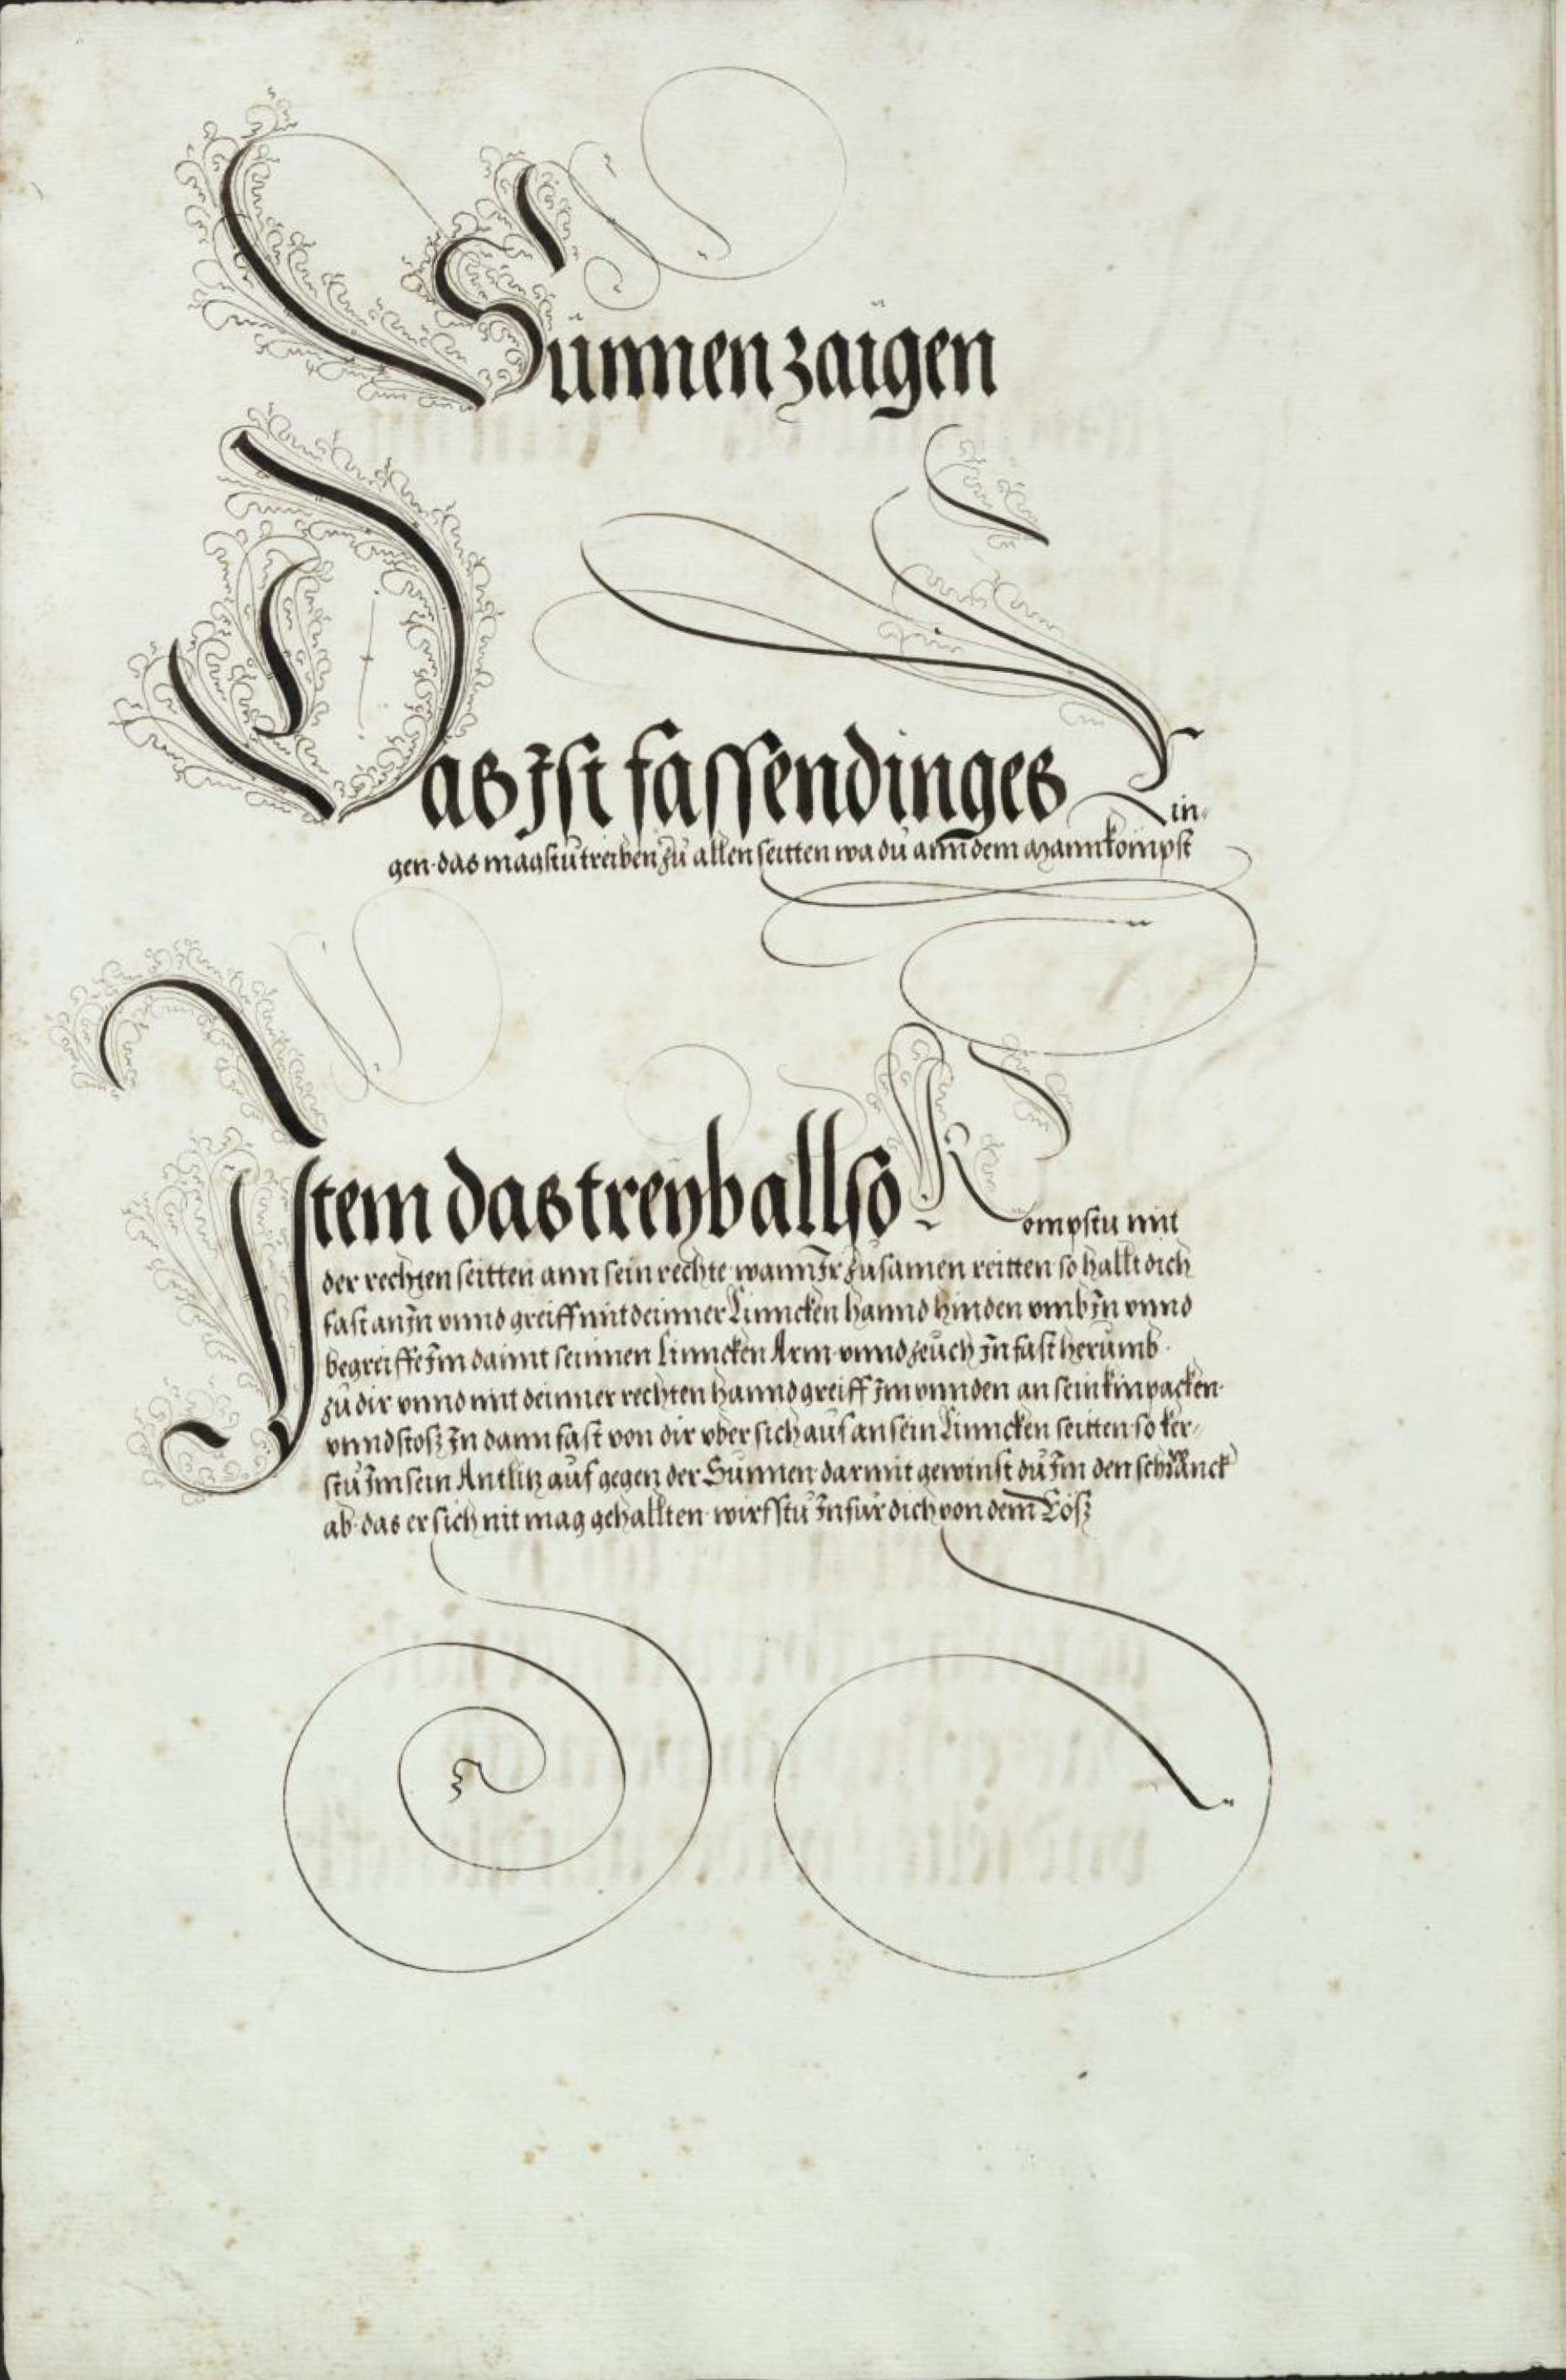 Sünnen zaigen
Das Ist fassendinges Rin-
gen· das magstu treiben zu allen seitten wa du ann dem Mann kompst
Item das treyb allso Kompstu mit
der rechten seitten ann sein rechte wann Ir zusamen reitten so hallt dich
fast an In vnnd greiff mit deinner Linncken hannd hinden vmb In vnnd
begreiffe Im damit seinnen linncken Arm vnnd zeuch In fast herumb·
zu dir vnnd mit deinner rechten hannd greiff Im vnnden an sein kinpacken·
vnnd stosz In dann fast von dir vber sich aus an sein Linncken seitten so ker-
stu Im sein Antlitz auf gegen der Sunnen darmit gewinst du Im den schwanck
ab· das er sich nit mag gehallten wirfstu In für dich von dem Rosz